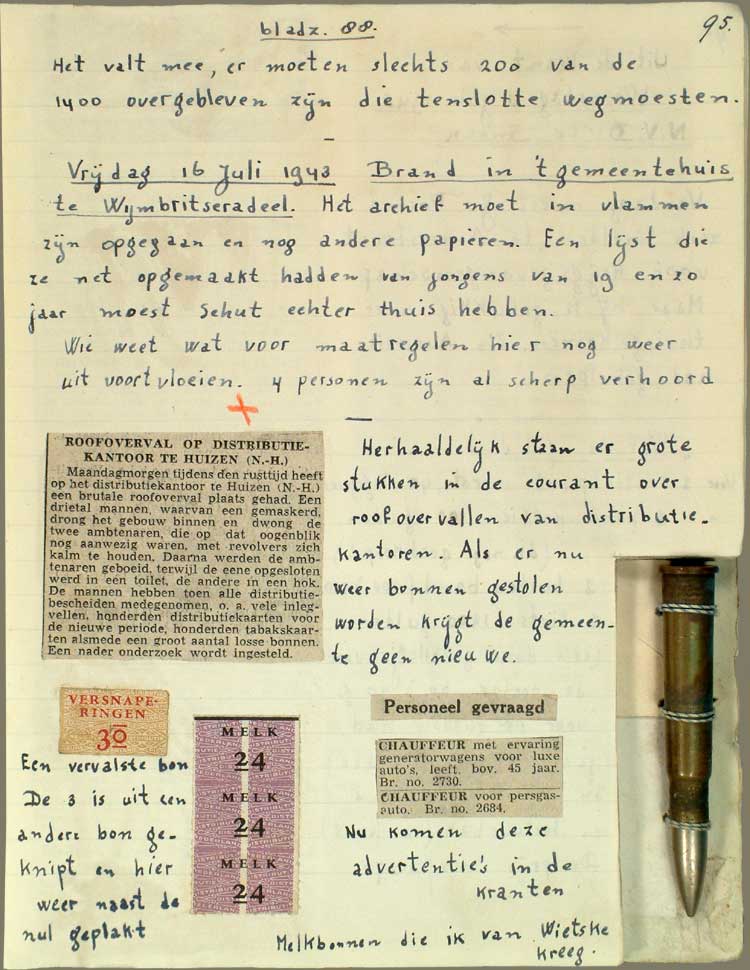 bladz. 88.
95.
Het valt mee, er moeten slechts 200 van de
1400 overgebleven zijn die tenslotte wegmoesten.
Vrijdag 16 Juli 1943 Brand in 't gemeentehuis
te Wymbritseradeel. Het archief moet in vlammen
zijn opgegaan en nog andere papieren. Een lijst die
ze net opgemaakt hadden van jongens van 19 en 20
jaar moest Schut echter thuis hebben.
Wie weet wat voor maatregelen hier nog weer
uit voortvloeien. 4 personen zijn al scherp verhoord
ROOFOVERVAL OP DISTRIBUTIE-
KANTOOR TE HUIZEN (N.-H.)
Maandagmorgen tijdens den rusttijd heeft
op het distributiekantoor te Huizen (N.-H.)
een brutale roofoverval plaats gehad. Een
drietal mannen, waarvan een gemaskerd,
drong het gebouw binnen en dwong de
twee ambtenaren, die op dat oogenblik
nog aanwezig waren, met revolvers zich
kalm te houden. Daarna werden de amb-
tenaren geboeid, terwijl de eene opgesloten
werd in een toilet, de andere in een hok.
De mannen hebben toen alle distributie-
bescheiden medegenomen, o. a. vele inleg-
vellen, honderden distributiekaarten voor
de nieuwe periode, honderden tabakskaar-
ten alsmede een groot aantal losse bonnen.
Een nader onderzoek wordt ingesteld.
Herhaaldelijk staan er grote
stukken in de courant over
roofovervallen van distributie-
kantoren. Als er nu
weer bonnen gestolen
worden krijgt de gemeen-
te geen nieuwe.
VERSNAPE-
RINGEN
30
Een vervalste bon
De 3 is uit een
andere bon ge-
knipt en hier
weer naast de
nul geplakt
MELK
24
MELK
24
MELK
24
Personeel gevraagd
CHAUFFEUR met ervaring
generatorwagens voor luxe
auto's, leeft. bov. 45 jaar.
Br. no. 2730.
CHAUFFEUR voor persgas-
auto. Br. no. 2684.
Nu komen deze
advertentie's in de
kranten
Melkbonnen die ik van Wietske
kreeg.